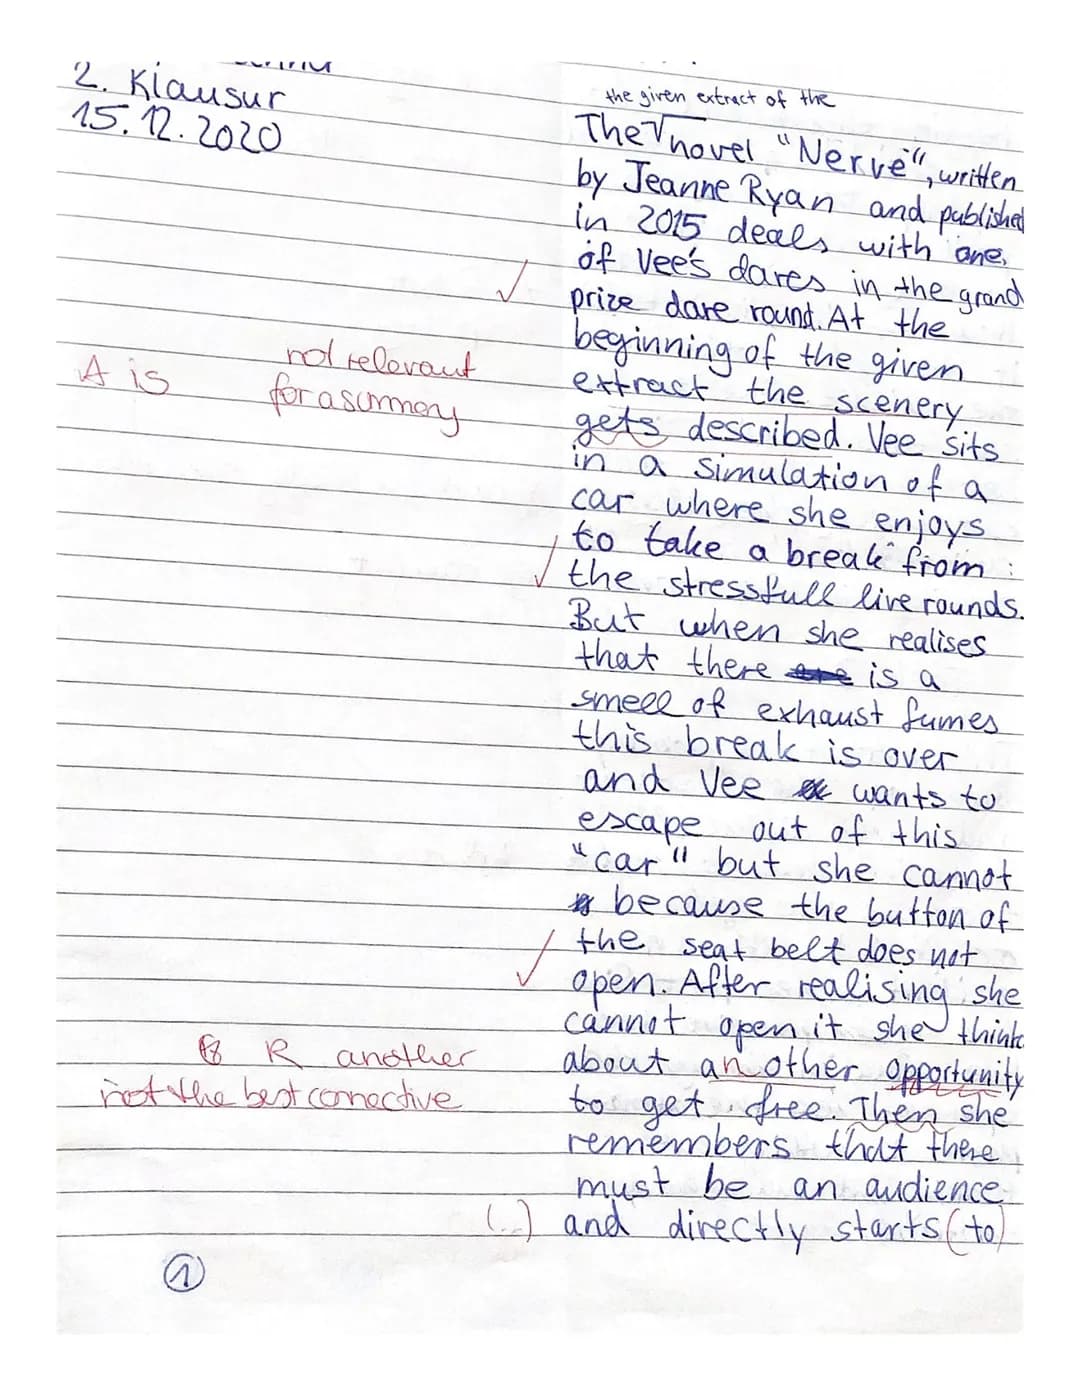 2. Klausur
15.12.2020
the given extract of the
The novel "Nerve", written
by Jeanne Ryan and published
in 2015 deals with one
of Vee's dares in the grand
prize dare round. At the
beginning of the given
extract the scenery
gets described. Vee sits
in a simulation of a
car where she enjoys
to take a break from
the stressfull live rounds.
But when she realises
that there is a
smell of exhaust fumes
this break is over
and Vee wants to
escape out of this
"car" but she cannot
because the button of
the seat belt does not
open. After realising she
cannot open it she think
about another opportunity
to get free. Then she
remembers that there
must be an audience
(...) and directly starts (to)
A is
not relevant
for a summery
R another
not the best conective
1